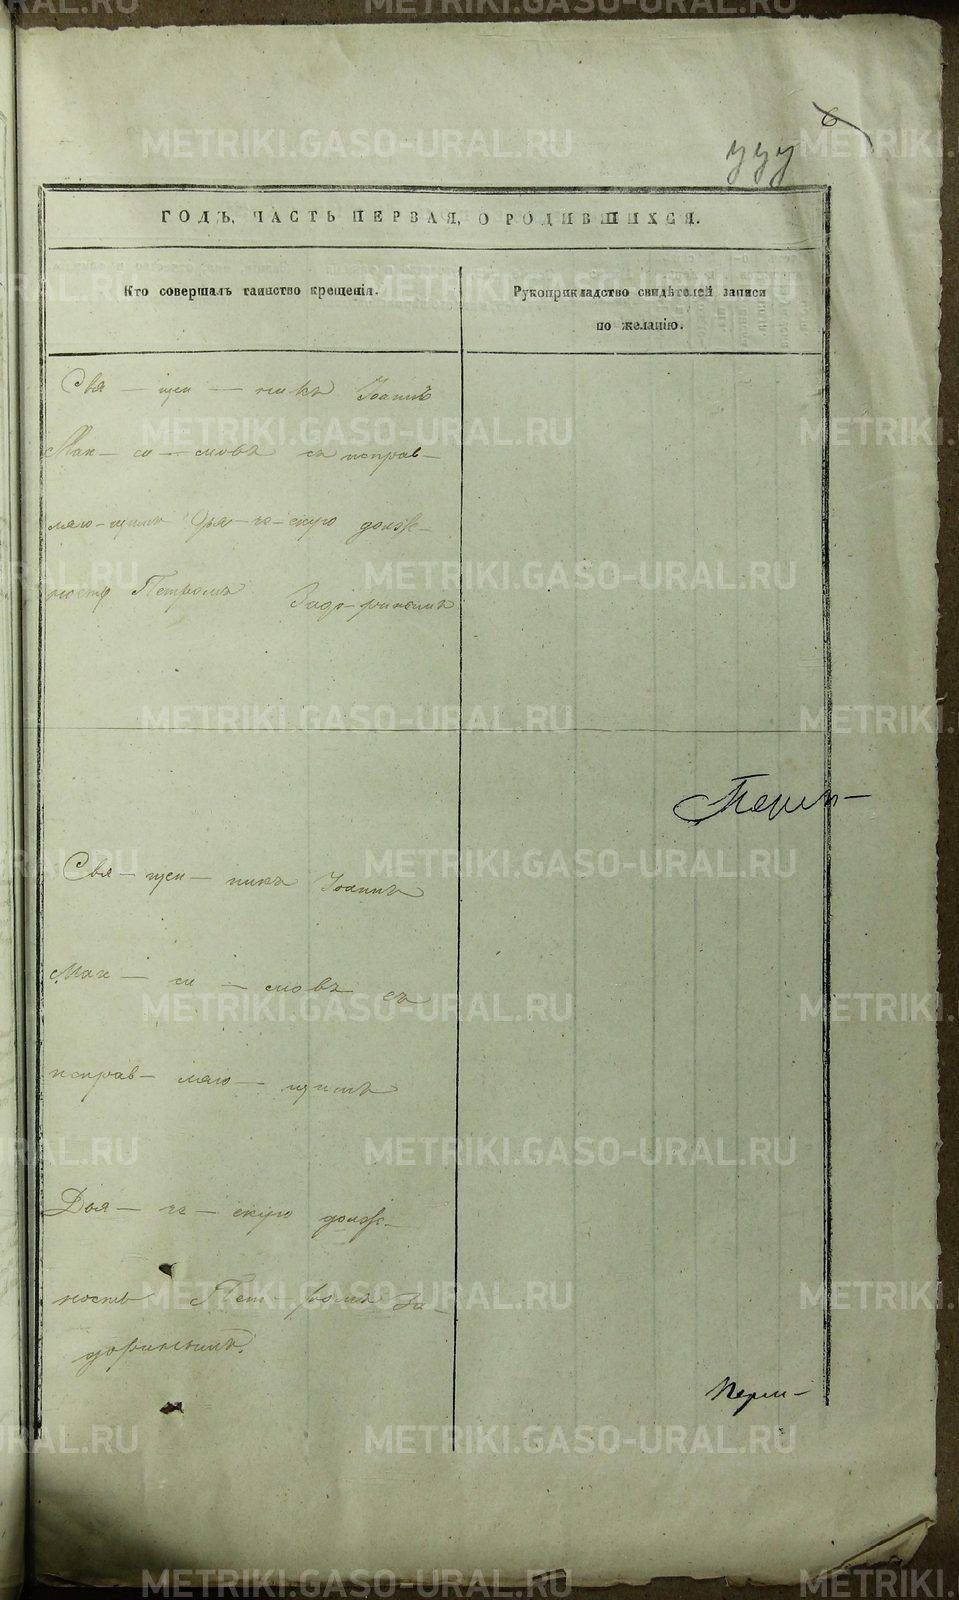 6
777
ГОДЪ, ЧАСТЬ ПЕРВАЯ, О РОДИВШИХСЯ.
Кто совершалъ таинство крещенія.
Рукоприкладство свидѣтелей записи
по желанію.
Свя-щен-никъ Іоаннъ
Мак-си-мовъ съ исправ-
ляю-щимъ Дья-че-скую долж-
ность Петромъ Задо-ринымъ
Перм-
Свя-щен-никъ Іоаннъ
Мак-си-мовъ съ
исправ-ляю-щимъ
Дья-че-скую долж-
ность Пет-ромъ За-
доринымъ.
Перм-
METRIKI.GASO-URAL.RU